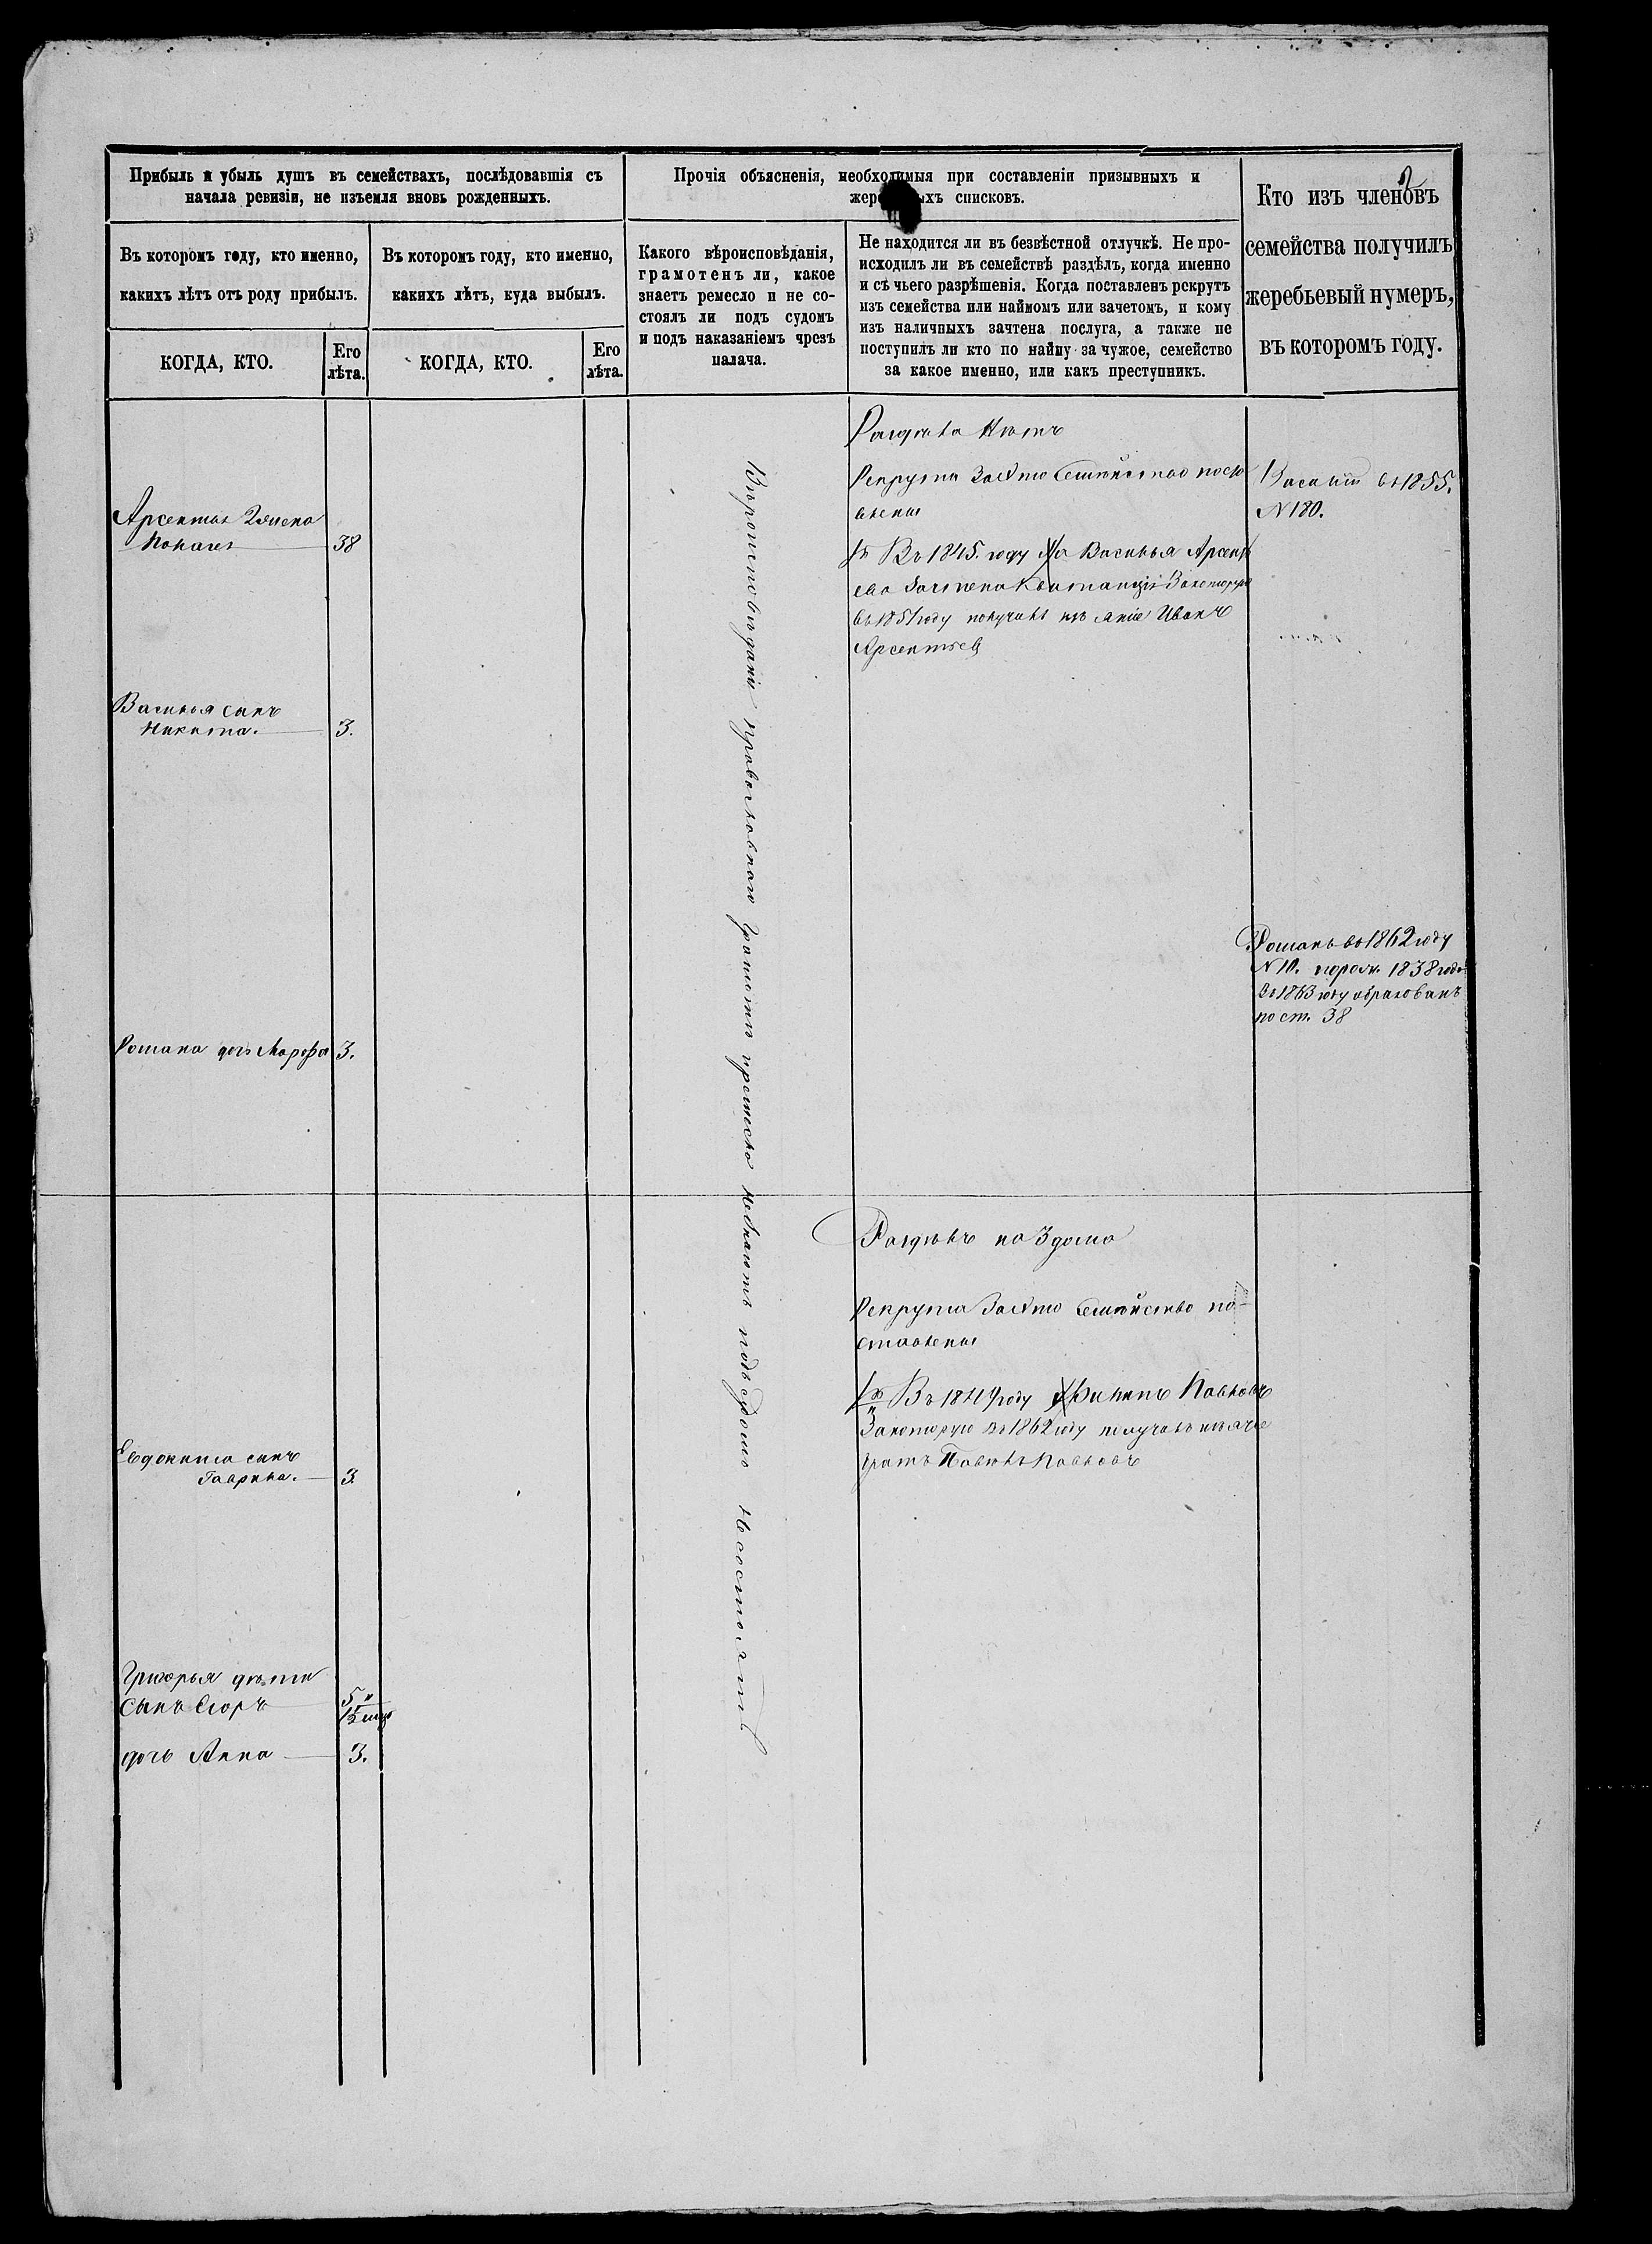 2
Прибыль и убыль душъ въ семействахъ, послѣдовавшія съ
начала ревизіи, не изъемля вновь рожденныхъ.
Въ которомъ году, кто именно,
какихъ лѣтъ отъ роду прибылъ.
КОГДА, КТО.
Его
лѣта.
Въ которомъ году, кто именно,
какихъ лѣтъ, куда выбылъ.
КОГДА, КТО.
Его
лѣта.
Прочія объясненія, необходимыя при составленіи призывныхъ и
жер ыхъ списковъ.
Какого вѣроисповѣданія,
грамотенъ ли, какое
знаетъ ремесло и не со-
стоялъ ли подъ судомъ
и подъ наказаніемъ чрезъ
палача.
Не находится ли въ безвѣстной отлучкѣ. Не про-
исходилъ ли въ семействѣ раздѣлъ, когда именно
и съ чьего разрѣшенія. Когда поставленъ рекрутъ
изъ семейства или наймомъ или зачетомъ, и кому
изъ наличныхъ зачтена послуга, а также не
поступилъ ли кто по найму за чужое, семейство
за какое именно, или какъ преступникъ.
Кто изъ членовъ
семейства получилъ
жеребьевый нумеръ,
въ которомъ году.
Арсентья
38
Василья сынъ
Никита. 3.
Романа дочь Марфа 3.
Евдокима сынъ
Гаврила. 3
Григорья дѣти
Сынъ Егоръ 5
дочь Анна 3.
Вѣроисповѣданія православнаго грамотѣ и ремесла незнаютъ подъ судомъ несостоятъ
Раздѣла Нѣтъ
Рекрута За это Семѣйство поста
влены
Въ 1845. году За Василья Арсенть
ева Зачтена Квитанція За которую
въ 1851 году получилъ Иванъ
Арсентьевъ
Раздѣлъ на 3 дома
Рекрута За это Семѣйство по-
ставлены
Въ году Филипъ Павловъ
За которую въ 1862 году получилъ
братъ Павелъ Павловъ
Василій въ 1855.
N 180.
Романъ во 1862 году
N 10. 1838 года
Въ 1863 году обракованъ
по ст. 38